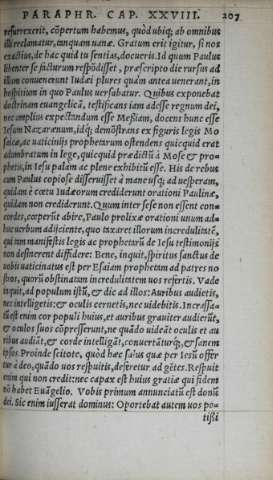 PARAPHR. CAP. XXVIII. 207
resurrexerit, cōpertum habemus, quòd ubiq; ab omnibus
illi reclamatur, tanquam uanæ. Gratum erit igitur, si nos
exactius, de hac quid tu sentias, docueris. Id quum Paulus
libenter se facturum respōdisset, præscripto die rursus ad
illum conuenerunt Iudæi plures quàm antea uenerant, in
hospitium in quo Paulus uersabatur. Quibus exponebat
doctrinam euangelicā, testificans iam adesse regnum dei,
nec amplius expectandum esse Messiam, docens hunc esse
Iesum Nazarænum, idq; demōstrans ex figuris legis Mo
saicæ, ac uaticinijs prophetarum ostendens quicquid erat
adumbratum in lege, quicquid prædictū à Mose & pro-
phetis, in Iesu palam ac plene exhibitū esse. His de rebus
cum Paulus copiose disseruisset à mane usq; ad uesperam,
quidam è cœtu Iudæorum crediderunt orationi Paulinæ,
quidam non crediderunt. Quum inter sese non essent con-
cordes, cœperūt abire, Paulo prolixæ orationi unum ad-
huc uerbum adijciente, quo taxaret illorum incredulitatē,
qui tam manifestis legis ac prophetarū de Iesu testimonijs
non desinerent diffidere: Bene, inquit, spiritus sanctus de
uobis uaticinatus est per Esaiam prophetam ad patres no
stros, quorū obstinatam incredulitatem uos refertis. Vade
inquit, ad populum istū, & dic ad illos: Auribus audietis,
nec intelligetis: & oculis cernetis, nec uidebitis. Incrassa-
tū est enim cor populi huius, et auribus grauiter audierūt,
& oculos suos cōpresserunt, ne quādo uideāt oculis et au
ribus audiāt, & corde intelligāt, conuertāturq́;, & sanem
ipsos. Proinde scitote, quòd hæc salus quæ per Iesū offer
tur à deo, quādo uos respuitis, deferetur ad gētes. Respuit
enim qui non credit: nec capax est huius gratiæ qui fidem
nō habet Euāgelio. Vobis primum annunciatū est donū
dei. Sic enim iusserat dominus: Oportebat autem uos po-
tissi